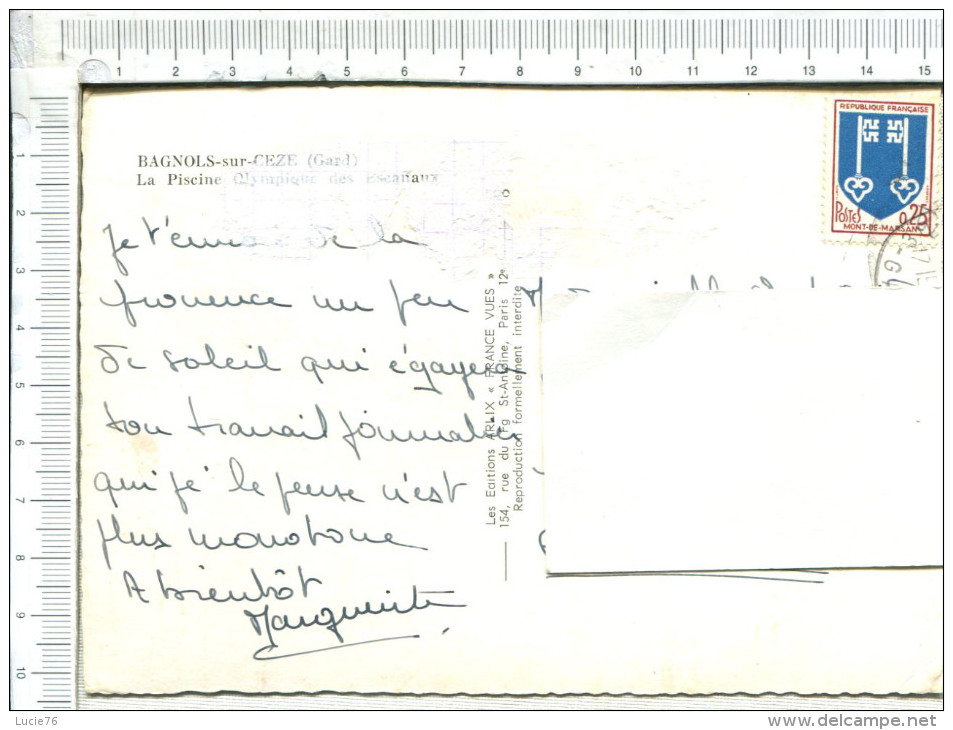 1 2 3 4 5 6 7 8 9 10 11 12 13 14 15
1
2
3
4
5
6
7
8
9
10
BAGNOLS-sur-CEZE (Gard)
La Piscine Olympique des Escanaux
REPUBLIQUE FRANÇAISE
POSTES 0,25
MONT-DE-MARSAN
Je t'envoie de la
Provence un peu
de soleil qui égayera
ton travail journalier
qui je le pense n'est
plus monotone
A bientôt
Marguerite
Les Editions ARLIX « FRANCE VUES »
154, rue du Fg St-Antoine, Paris 12e
Reproduction formellement interdite
Lucie76
www.delcampe.net